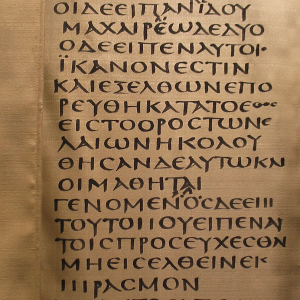 ΟΙΔΕΕΙΠΑΝΪΔΟΥ
ΜΑΧΑΙΡΕΩΔΕΔΥΟ
ΟΔΕΕΙΠΕΝΑΥΤΟΙ·
ΪΚΑΝΟΝΕϹΤΙΝ
ΚΑΙΕΞΕΛΘΩΝΕΠΟ
ΡΕΥΘΗΚΑΤΑΤΟΕΘΟϹ
ΕΙϹΤΟΟΡΟϹΤΩΝΕ
ΛΑΙΩΝΗΚΟΛΟΥ
ΘΗϹΑΝΔΕΑΥΤΩΚΝ
ΟΙΜΑΘΗΤΑΙ
ΓΕΝΟΜΕΝΟϹΔΕΕΠΙ
ΤΟΥΤΟΠΟΥΕΙΠΕΝΑΥ
ΤΟΙϹΠΡΟϹΕΥΧΕϹΘΑΙ
ΜΗΕΙϹΕΛΘΕΙΝΕΙϹ
ΠΙΡΑϹΜΟΝ